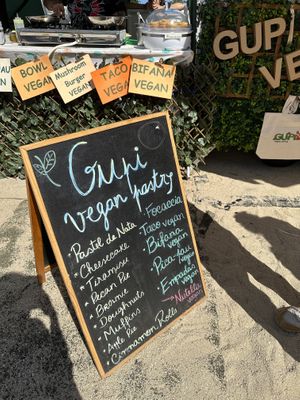 BOWL
VEGAN
Mushroom
Burger
VEGAN
TACO
VEGAN
BIFANA
VEGAN
GUPI
VE
GUPI
Gupi
vegan pastry
• Pastel de Nata
• Cheesecake
• Tiramisu
• Pecan Pie
• Brownie
• Doughnuts
• Muffins
• Apple Pie
• Cinnamon Rolls
• Focaccia
• Taco vegan
• Bifana
vegan
• Pica-Pau
vegan
• Empadas
vegan
• Nutella
vegan